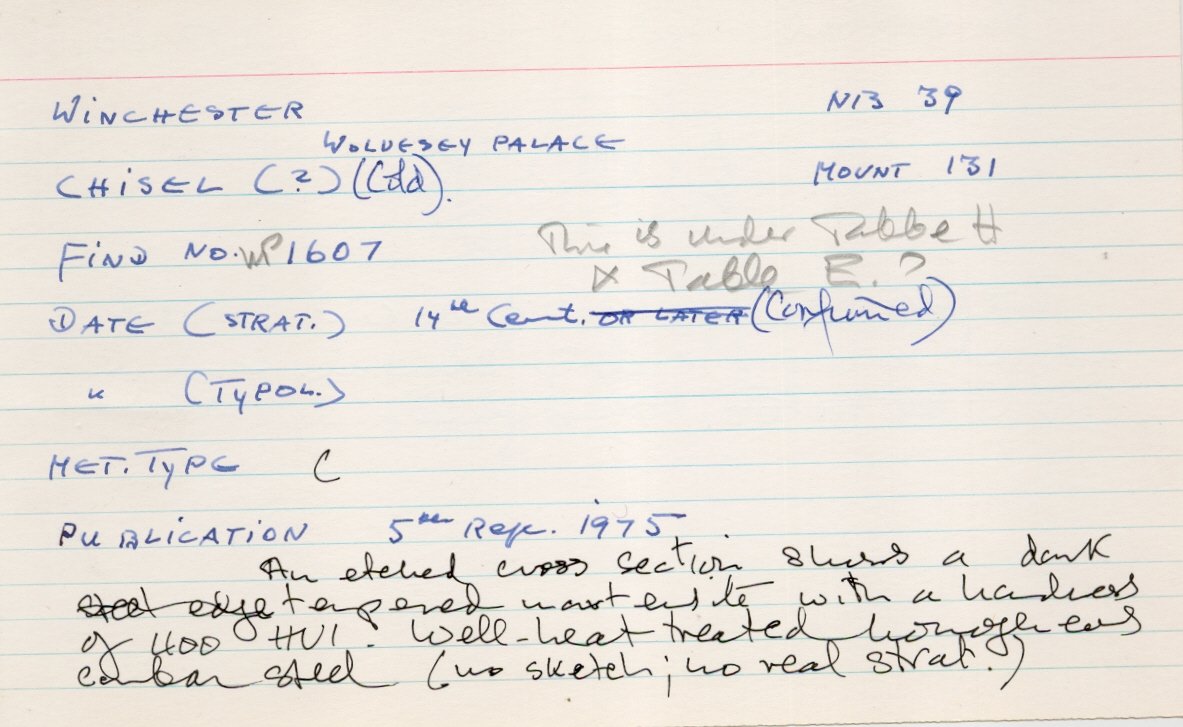 WINCHESTER NB 39
WOLVESEY PALACE
CHISEL (?) (Cold). MOUNT 131
FIND NO. WP 1607 This is under Table H
X Table E. ?
DATE (STRAT.) 14th Cent. OR LATER (Confirmed)
" (TYPOL.)
MET. TYPE C
PUBLICATION 5th Rep. 1975
An etched cross section shows a dark
steel edge tempered martensite with a hardness
of 400 HV1. Well-heat treated homogheneous
carbon steel (no sketch; no real strat.)